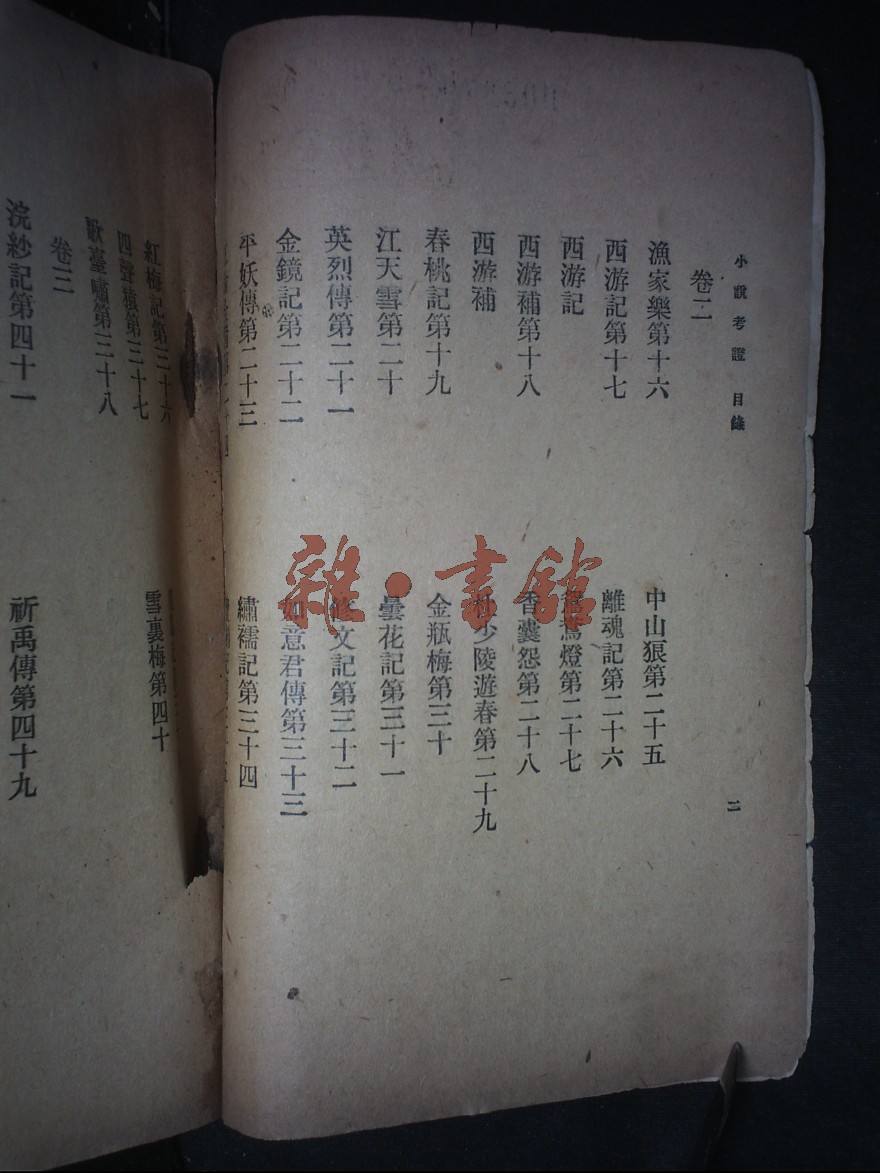 小說考證 目錄
二
卷二
漁家樂第十六
西游記第十七
西游記
西游補第十八
西游補
春桃記第十九
江天雪第二十
英烈傳第二十一
金鏡記第二十二
平妖傳第二十三
中山狼第二十五
離魂記第二十六
燈第二十七
香囊怨第二十八
杜少陵遊春第二十九
金瓶梅第三十
曇花記第三十一
修文記第三十二
如意君傳第三十三
繡襦記第三十四
雜·書館
紅梅記第三十六
四聲猿第三十七
歌臺嘯第三十八
卷三
浣紗記第四十一
雪裏梅第四十
祈禹傳第四十九